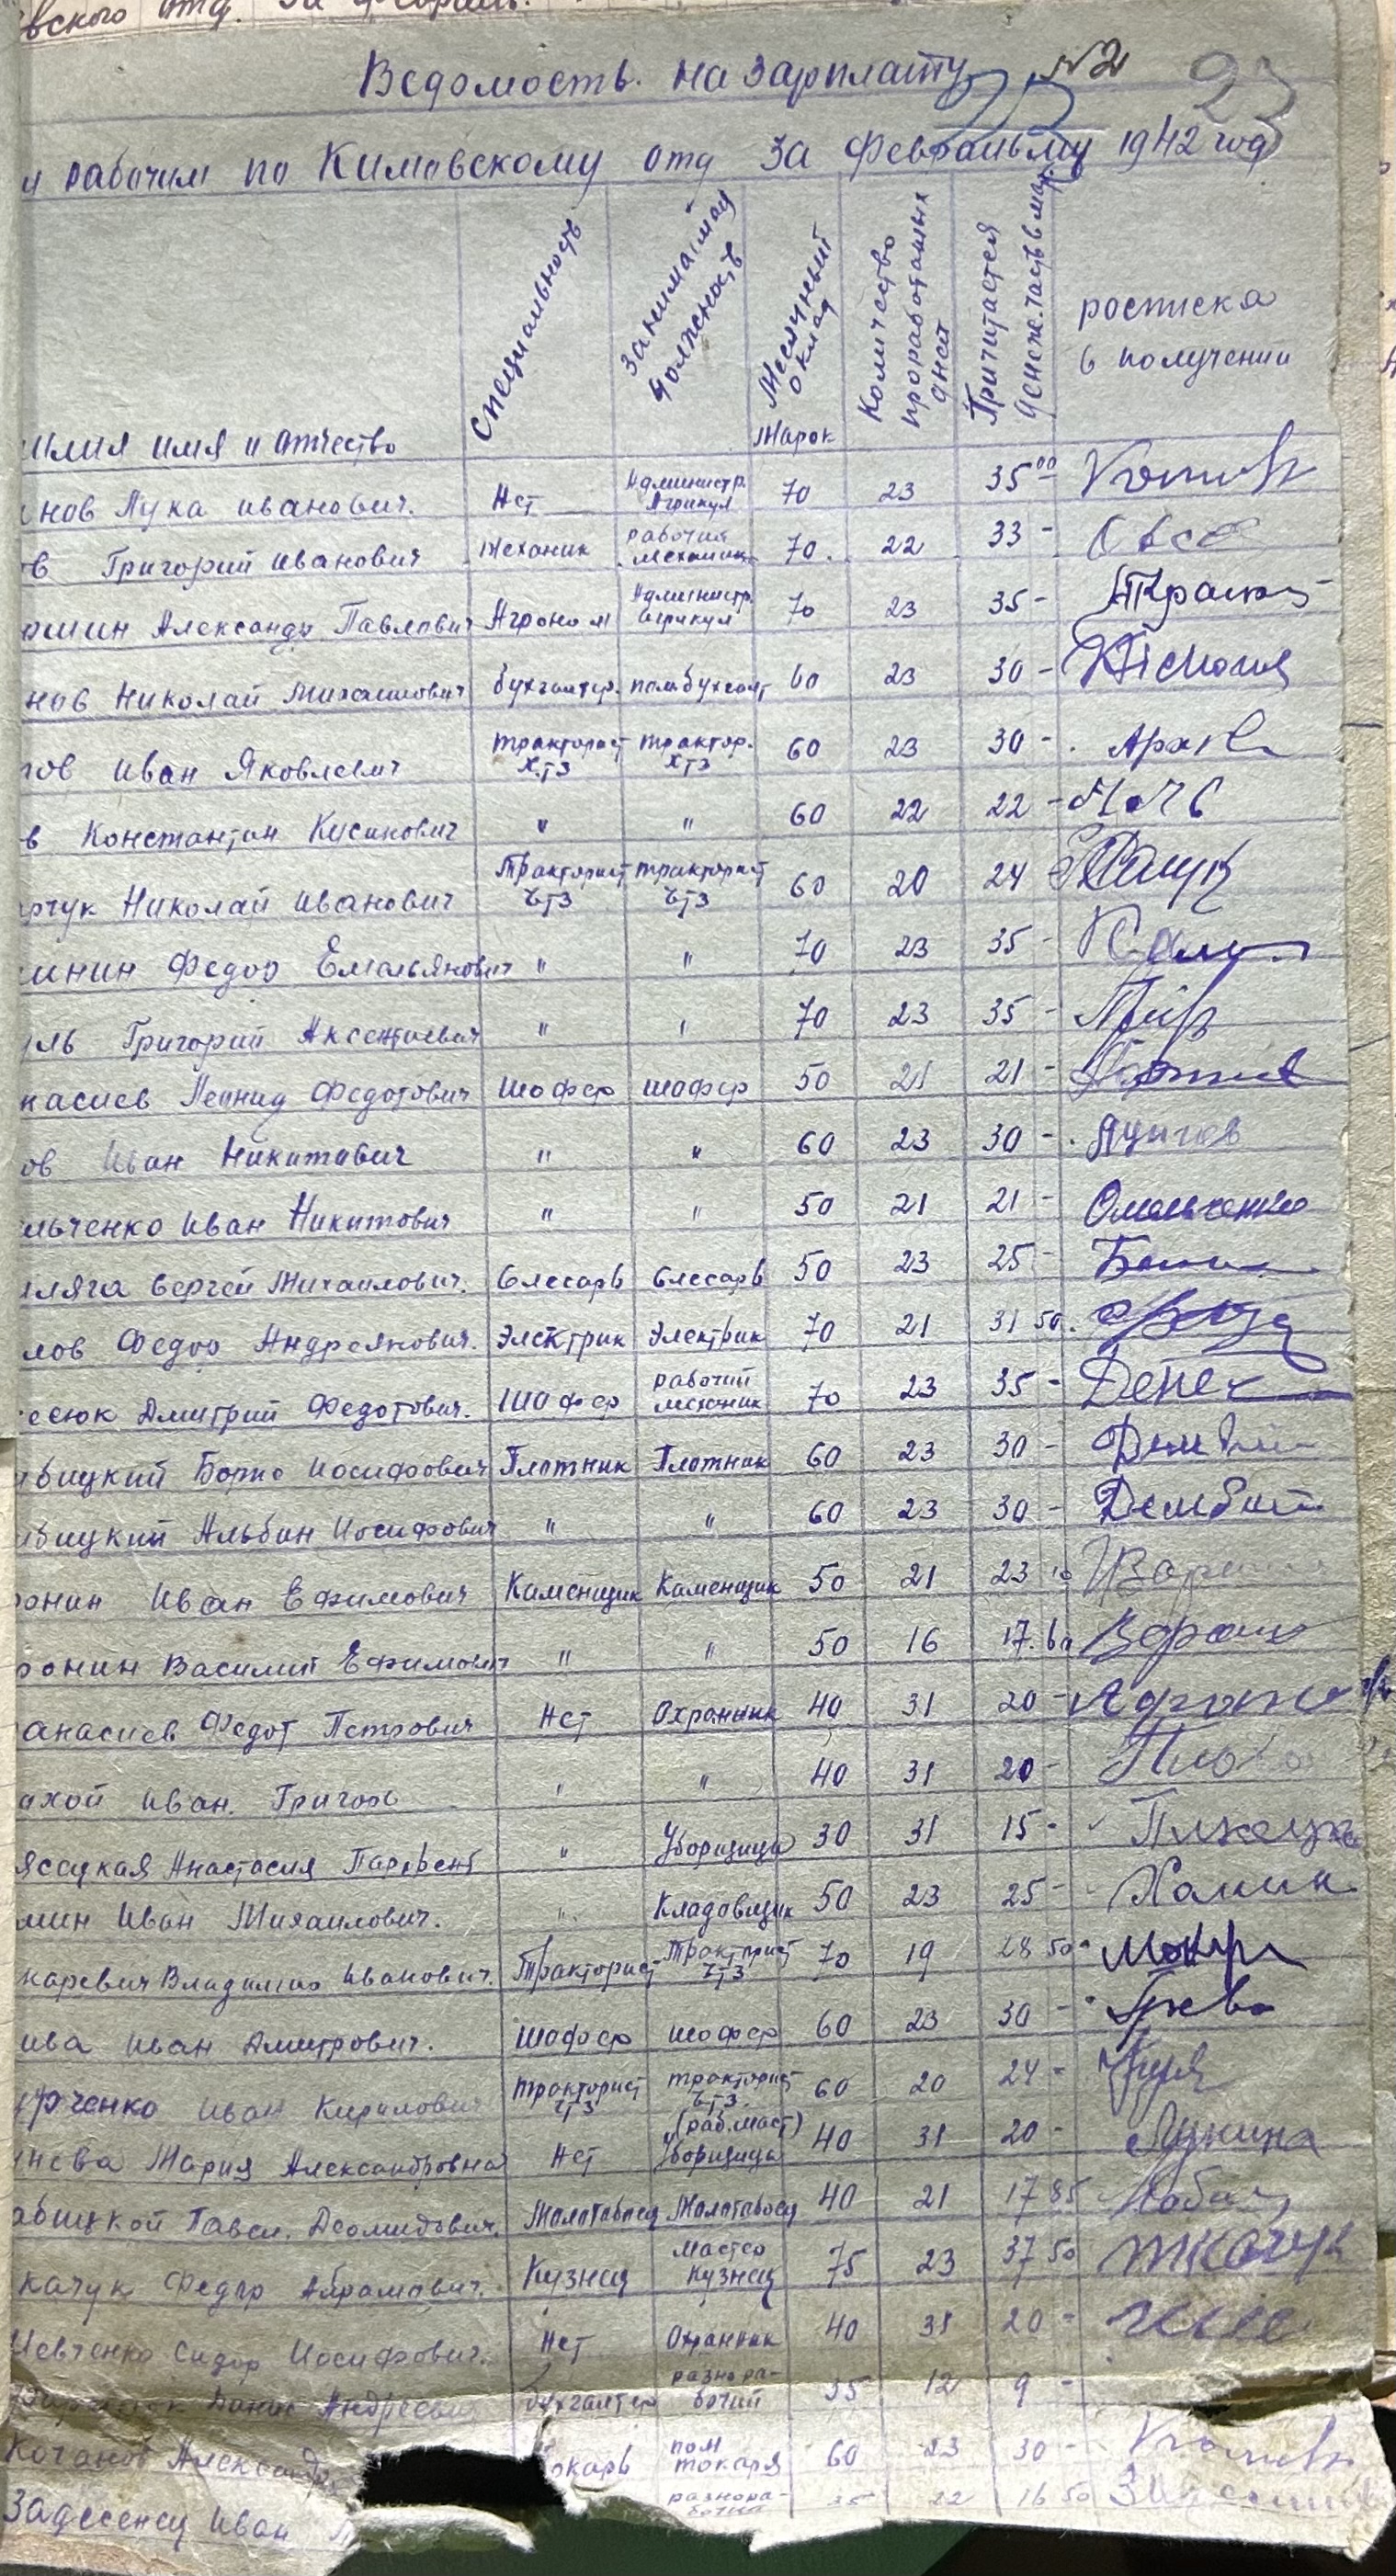 вского отд. за февраль.
Ведомость на зарплату №2 23
и рабочим по Кимовскому отд за Февраль м-ц 1942 год
милия имя и отчество Специальность Занимаймая должность Месячный оклад Марок Количество проработаных дней Причитается денеж. часть в мар. росписка в получении
нов Лука Иванович. Нет Администр. Агрикул 70 23 35 00
в Григорий Иванович Механик рабочий механик 70. 22 33 -
шин Александр Павлович Агроном Администр. агрикул 70 23 35 -
нов Николай Михайлович бухгалтер. пом бухгалт 60 23 30 -
ов Иван Яковлевич тракторист ХТЗ трактор. ХТЗ 60 23 30 -
в Константин Кусинович " " 60 22 22 -
рчук Николай Иванович Тракторист ЧТЗ тракторист ЧТЗ 60 20 24
инин Федор Емельянович " " 70 23 35 -
ль Григорий Аксентиевич " " 70 23 35 -
насиев Леонид Федотович Шофер шофер 50 21 21 -
ов Иван Никитович " " 60 23 30 -
льченко Иван Никитович " " 50 21 21 - Омельченко
ляга Сергей Михайлович. Слесарь Слесарь 50 23 25 -
лов Федор Андреянович. Электрик Электрик 70 21 31 50.
есюк Дмитрий Федотович. Шофер рабочий механик 70 23 35 -
бицкий Борис Иосифович Плотник Плотник 60 23 30 -
бицкий Альбин Иосифович " " 60 23 30 -
онин Иван Ефимович Каменщик Каменщик 50 21 23 10
ронин Василий Ефимович " " 50 16 17. 60
анасиев Федот Петрович Нет Охранник 40 31 20 -
ахой Иван. Григор " " 40 31 20 -
ясецкая Анастасия Парфент " Уборщица 30 31 15 -
мин Иван Михайлович. " Кладовщик 50 23 25 - Хомин
каревич Владимир Иванович. Тракторист Тракторист ЧТЗ 70 19 28 50
ива Иван Дмитрович. Шофер шофер 60 23 30 -
рченко Иван Кирилович тракторист ЧТЗ тракторист ЧТЗ. 60 20 24 -
нева Мария Александровна Нет (раб. маст) Уборщица 40 31 20 -
абицкой Павел. Деомидович. Молотобоец Молотобоец 40 21 17 85
качук Федор Абрамович. Кузнец мастер кузнец 75 23 37 50 Ткачук
Шевченко Сидор Иосифович. Нет Охранник 40 31 20 -
Андреевич бухгалтер разнора- бочий 35 12 9 -
Кочанов Александр окарь пом токаря 60 23 30 -
Задесенец Иван разнора- бочий 35 22 16 50